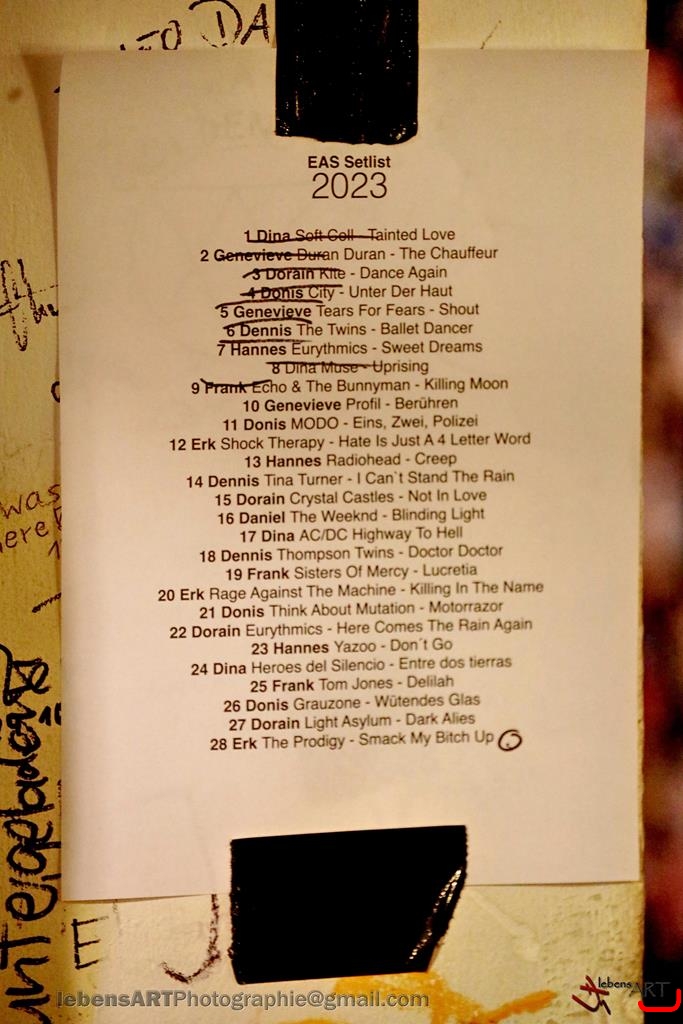 TO DA
EAS Setlist
2023
1 Dina Soft Cell - Tainted Love
2 Genevieve Duran Duran - The Chauffeur
3 Dorain Kite - Dance Again
4 Donis City - Unter Der Haut
5 Genevieve Tears For Fears - Shout
6 Dennis The Twins - Ballet Dancer
7 Hannes Eurythmics - Sweet Dreams
8 Dina Muse - Uprising
9 Frank Echo & The Bunnyman - Killing Moon
10 Genevieve Profil - Berühren
11 Donis MODO - Eins, Zwei, Polizei
12 Erk Shock Therapy - Hate Is Just A 4 Letter Word
13 Hannes Radiohead - Creep
14 Dennis Tina Turner - I Can`t Stand The Rain
15 Dorain Crystal Castles - Not In Love
16 Daniel The Weeknd - Blinding Light
17 Dina AC/DC Highway To Hell
18 Dennis Thompson Twins - Doctor Doctor
19 Frank Sisters Of Mercy - Lucretia
20 Erk Rage Against The Machine - Killing In The Name
21 Donis Think About Mutation - Motorrazor
22 Dorain Eurythmics - Here Comes The Rain Again
23 Hannes Yazoo - Don´t Go
24 Dina Heroes del Silencio - Entre dos tierras
25 Frank Tom Jones - Delilah
26 Donis Grauzone - Wütendes Glas
27 Dorain Light Asylum - Dark Alies
28 Erk The Prodigy - Smack My Bitch Up
was
E
lebensARTPhotographie@gmail.com
lebensART